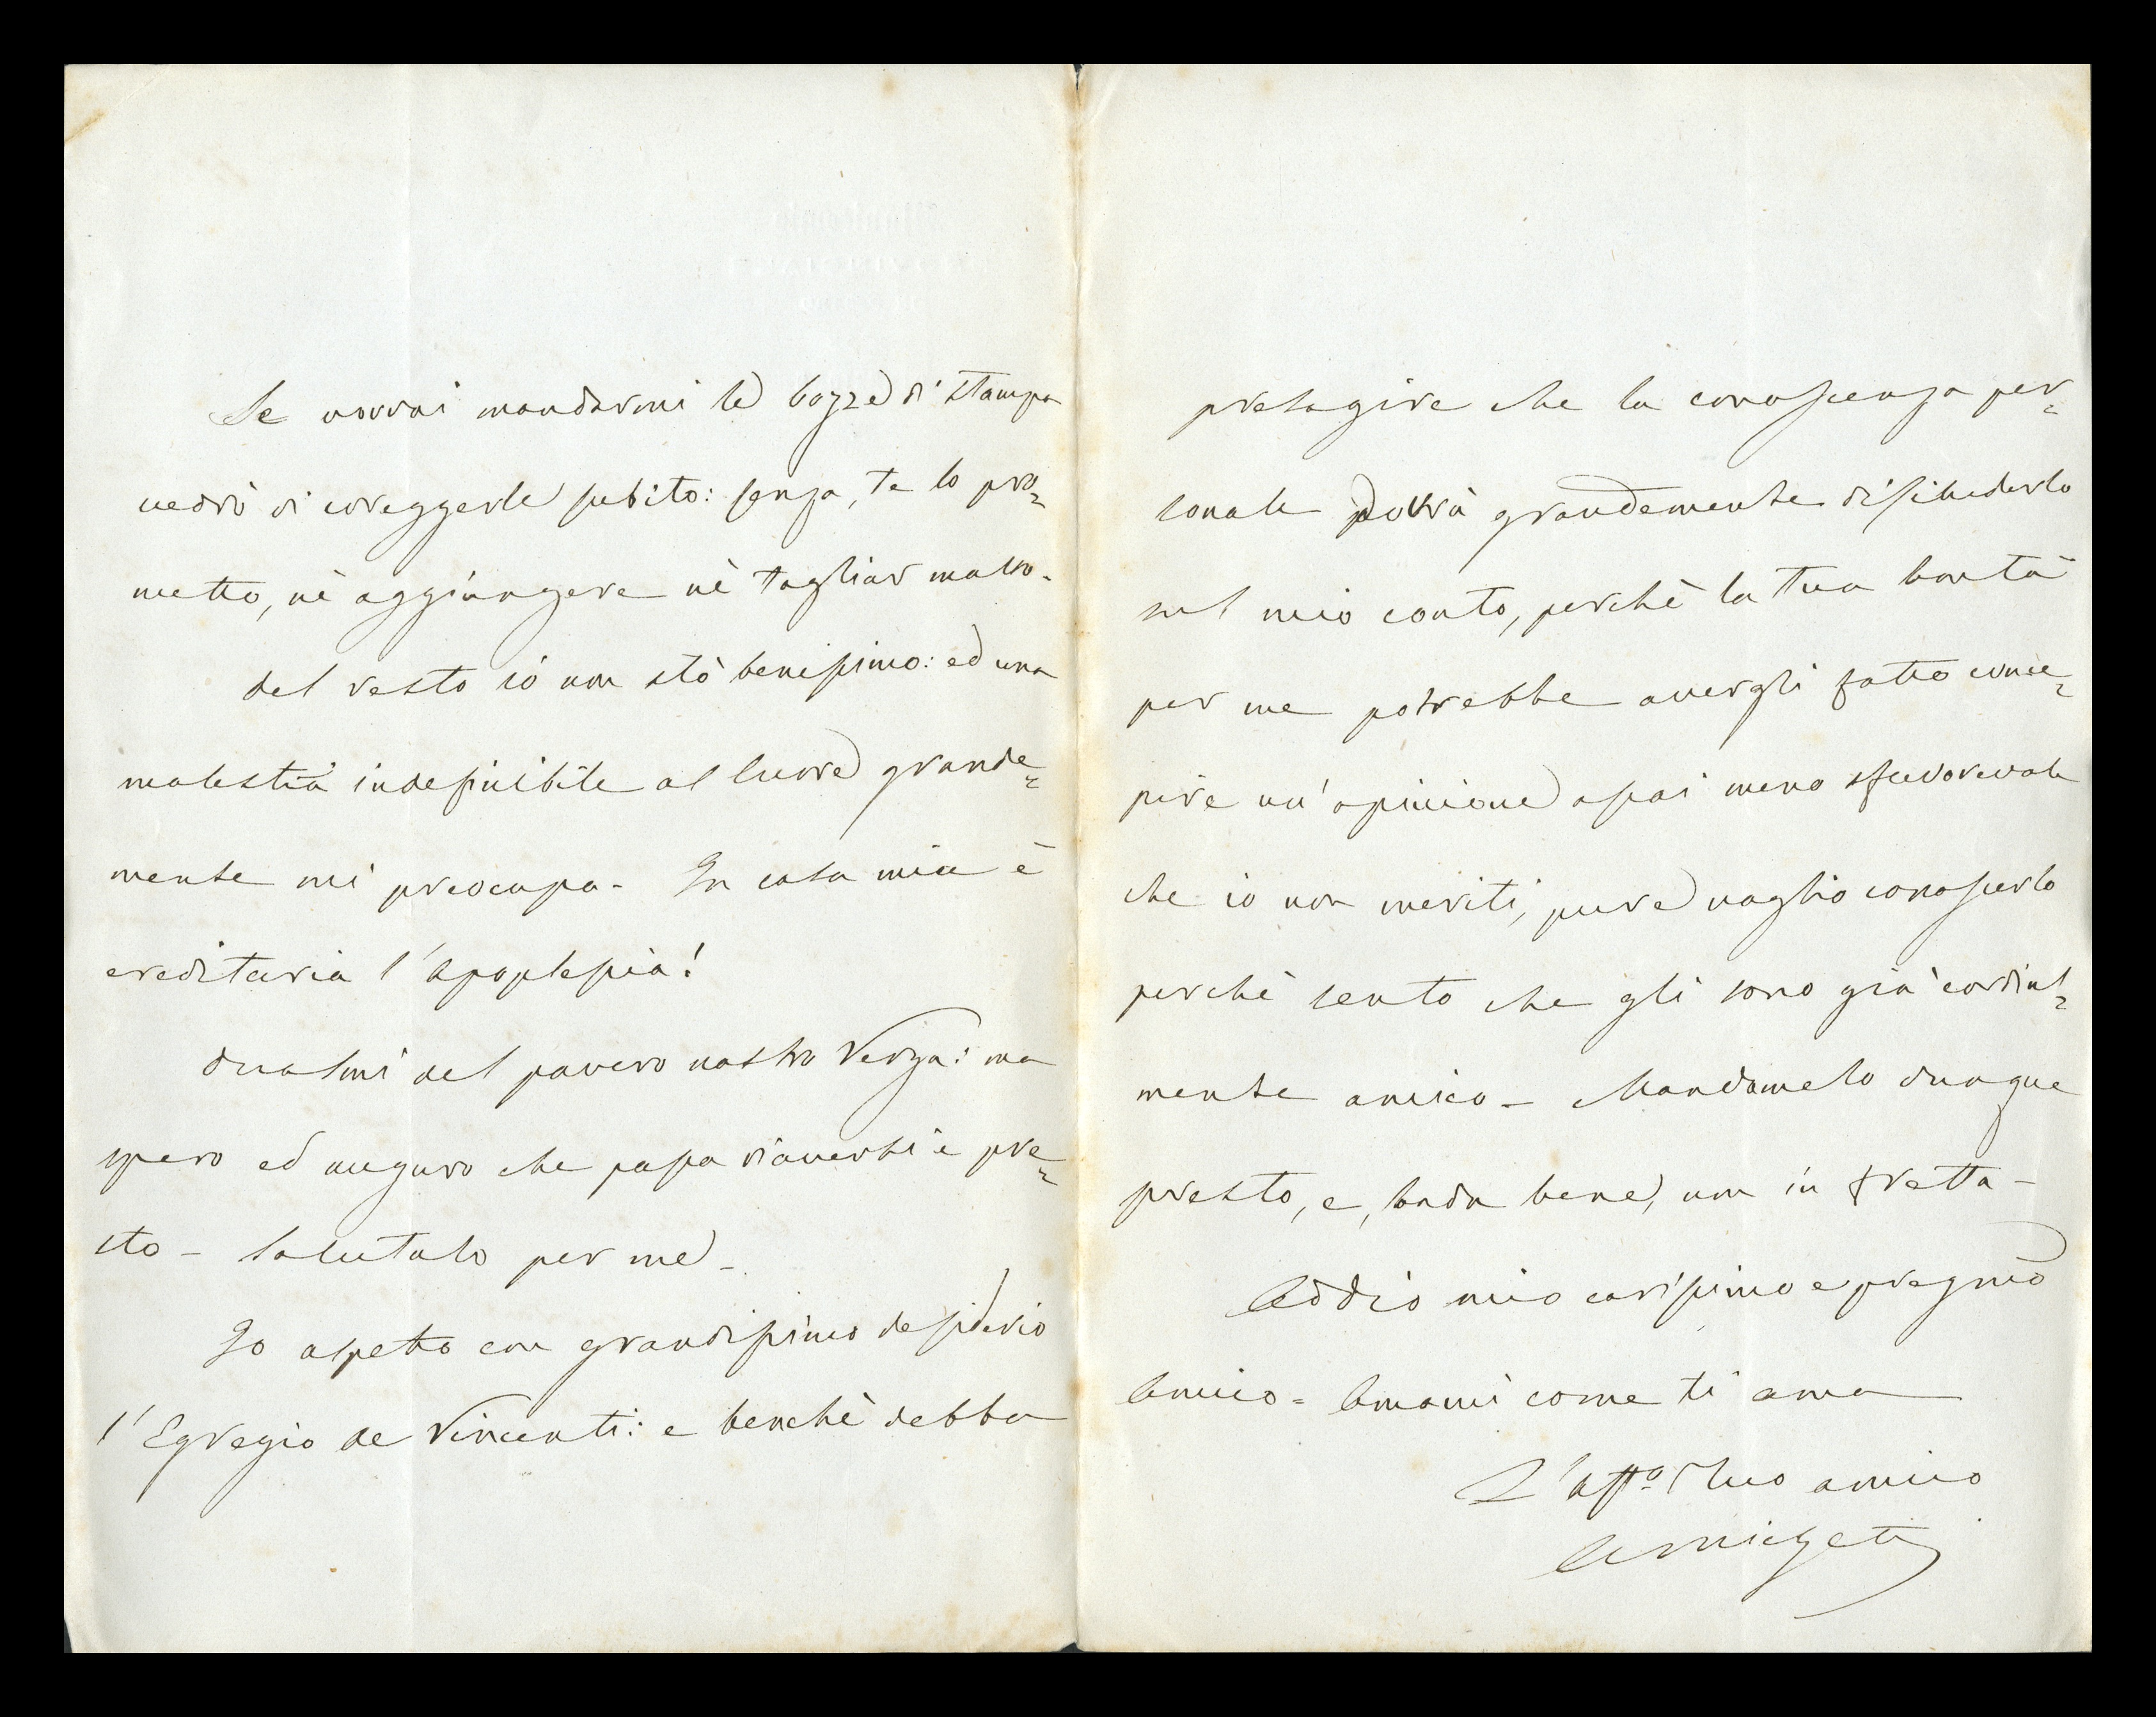 Se vorrai mandarmi le bozze di stampa
vedrò di correggerle subito: senza, te lo pro=
metto, nè aggiungere nè tagliar molto.
Del resto io non stò benissimo: ed una
molestia indefinibile al cuore grande=
mente mi preocupa - In casa mia è
ereditaria l'apoplessia!
Duolmi del povero nostro Verga: ma
spero ed auguro che possa riaversi e pre=
sto - Salutalo per me -
Io aspetto con grandissimo desiderio
l'Egregio de Vincenti: e benchè debba
presagire che la conoscenza per=
sonale dovrà grandemente disilluderlo
sul mio conto, perchè la tua bontà
per me potrebbe avergli fatto conce=
pire un'opinione assai meno sfavorevole
che io non meriti, pure voglio conoscerlo
perchè sento che gli sono già cordial=
mente amico - Mandamelo dunque
presto, e, bada bene, non in fretta -
Addio mio carissimo e pregmo
Amico = Amami come ti ama
L'affo tuo amico